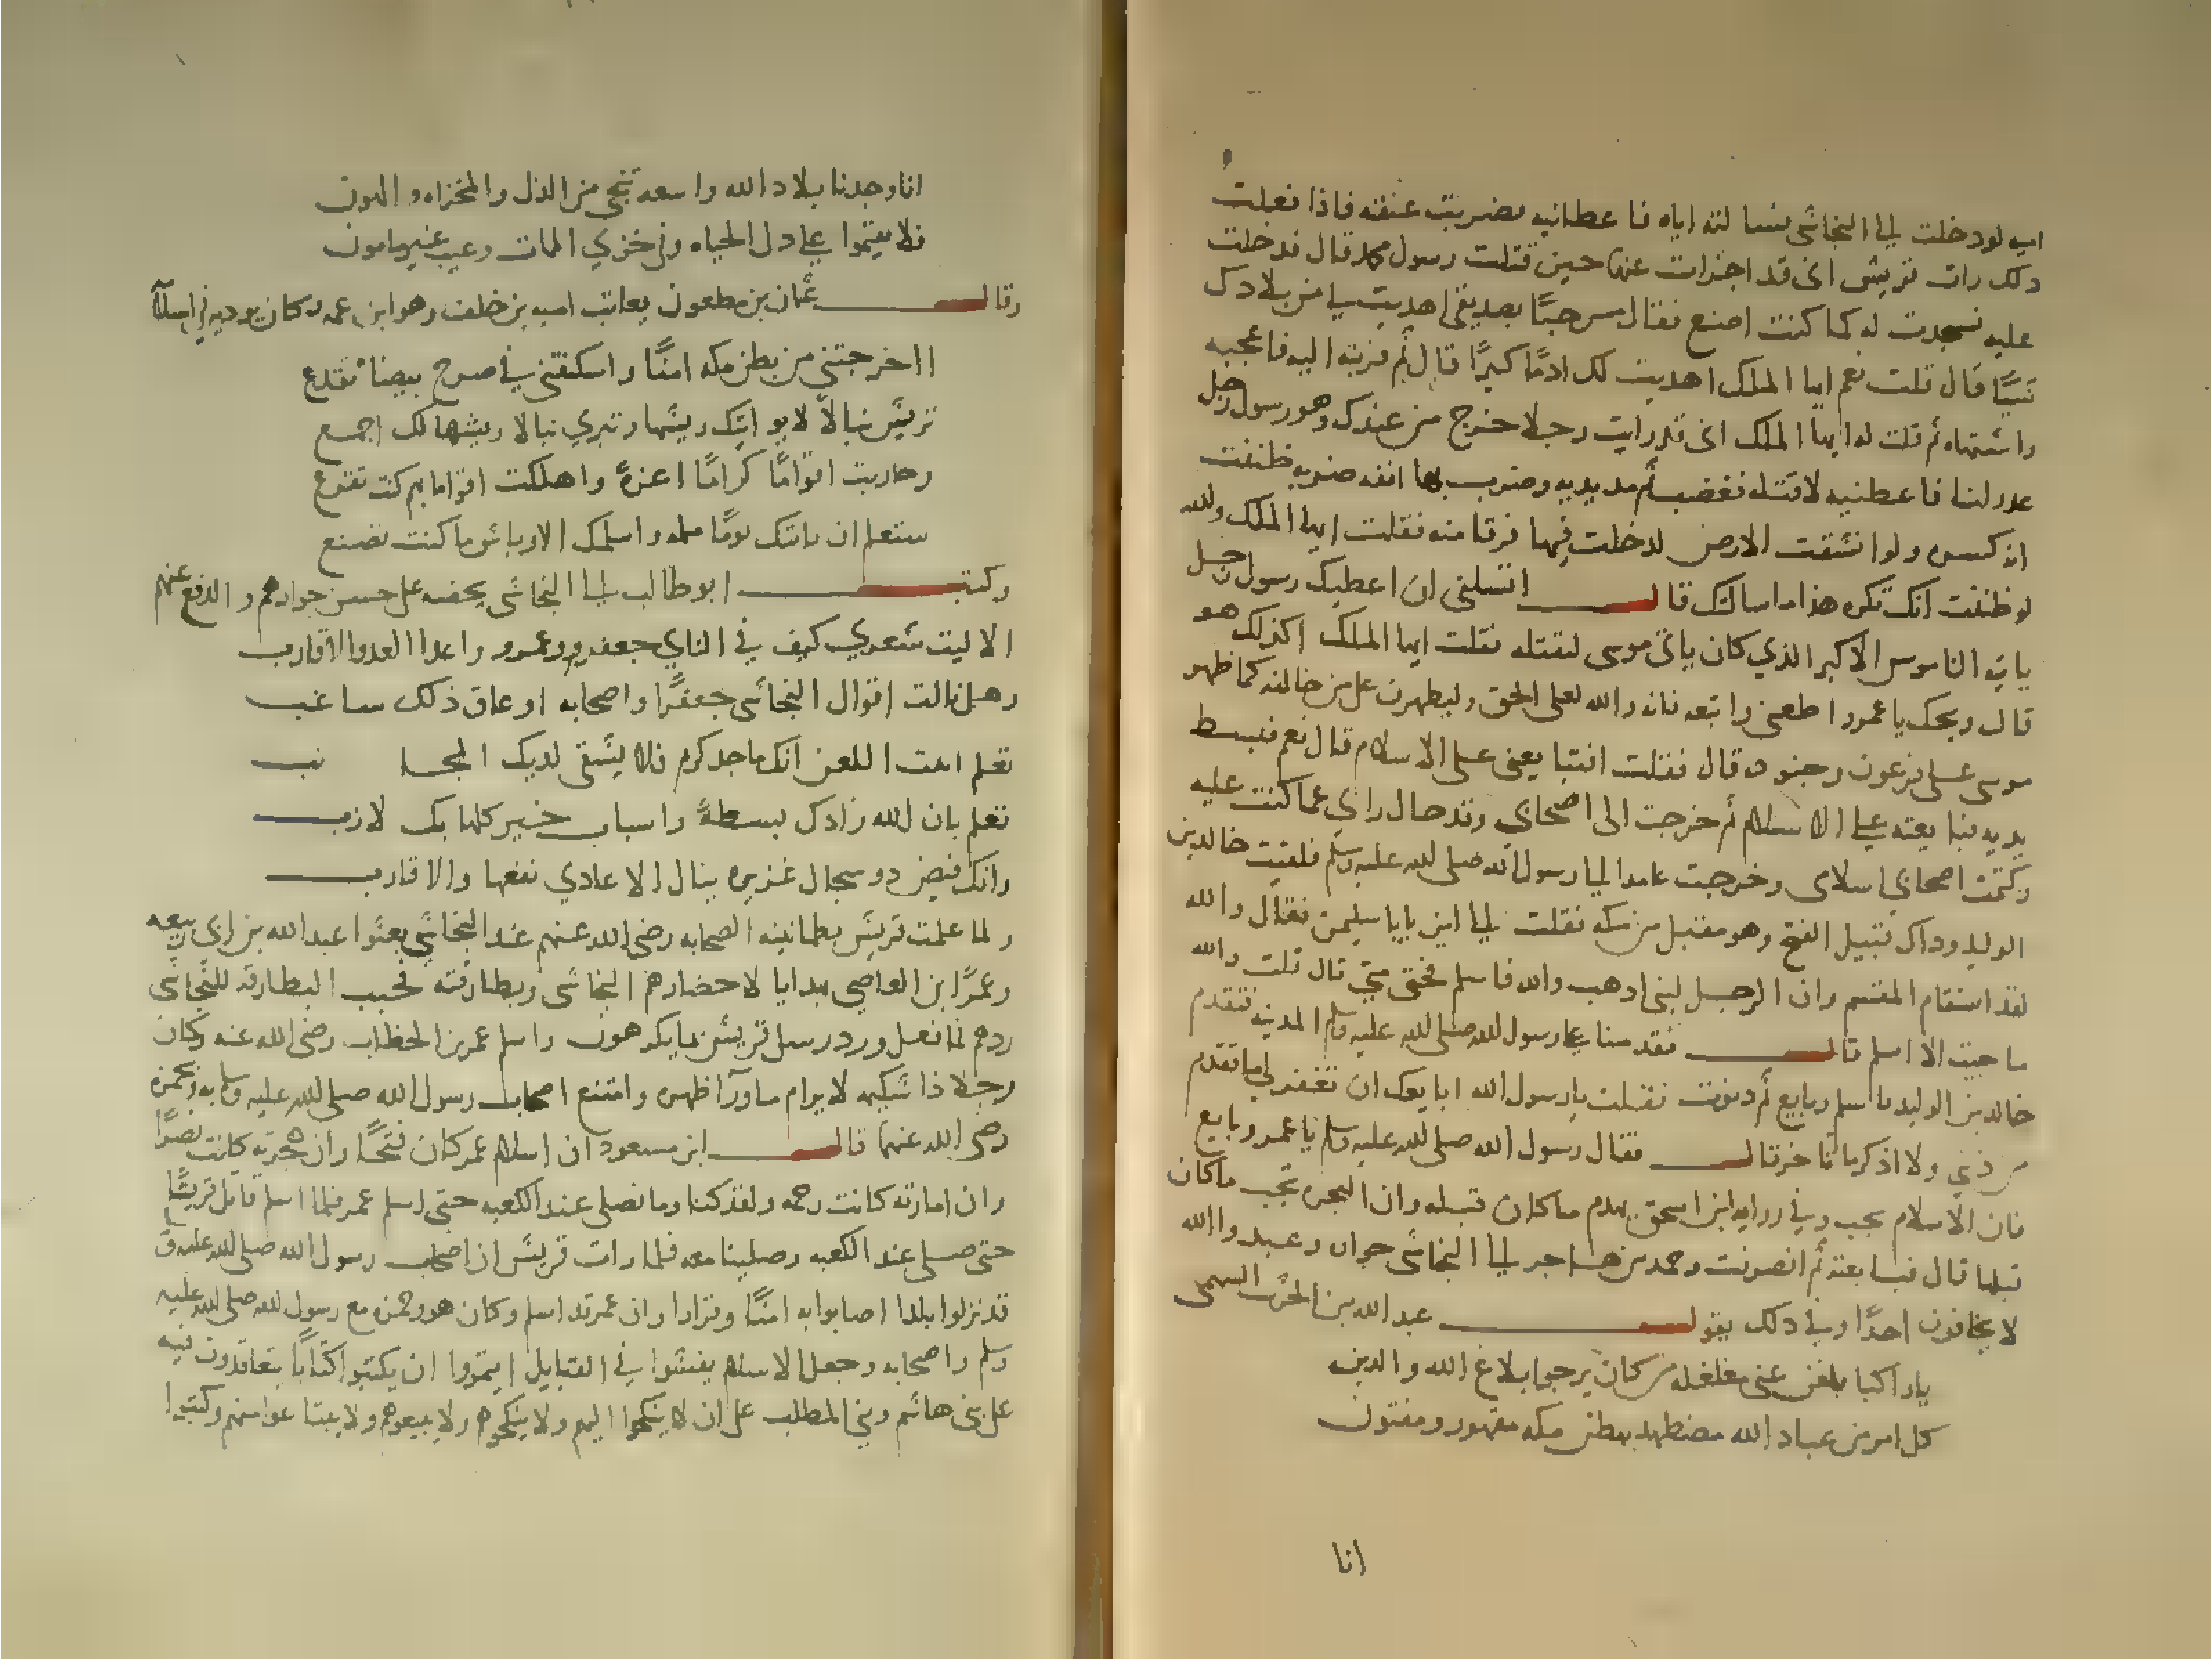 اميه لو دخلت الى النجاشى فسالته اياه فاعطانيه فضربت عنقه فاذا فعلت
ذلك رات قريش انى قد اجزات عنها حين قتلت رسول محمد قال فدخلت
عليه فسجدت له كما كنت اصنع فقال مرحبًا بصديقى اهديت لي من بلادك
شيًا قال قلت نعم ايها الملك اهديت لك ادمًا كثيرًا قال ثم قربته اليه فاعجبه
واشتهاه ثم قلت له ايها الملك انى قد رايت رجلا خرج من عندك وهو رسول رجل
عدو لنا فاعطنيه لاقتله فغضب ثم مد يده وضرب بها انفه ضربه ظننت
انه كسره ولو انشقت الارض لدخلت فيها فرقا منه فقلت ايها الملك والله
لو ظننت انك تكره هذا ما سالتك قال اتسلنى ان اعطيك رسول رجل
ياتيه الناموس الاكبر الذي كان ياتى موسى لتقتله فقلت ايها الملك اكذلك هو
قال ويحك يا عمرو اطعنى واتبعه فانه والله لعلى الحق وليظهرن على من خالفه كما ظهر
موسى على فرعون وجنوده قال فقلت افتبايعنى على الاسلام قال نعم فبسط
يده فبايعته على الاسلام ثم خرجت الى اصحابي وقد حال رايي عما كنت عليه
وكتمت اصحابى اسلامى وخرجت عامدا الى رسول الله صلى الله عليه وسلم فلقيت خالد بن
الوليد وذاك قبيل الفتح وهو مقبل من مكه فقلت الى اين يابا سليمن فقال والله
لقد استقام المنسم وان الرجل لنبى اذهب والله فاسلم فحتى متى قال قلت والله
ما جيت الا اسلم قال فقدمنا على رسول الله صلى الله عليه وسلم المدينه فتقدم
خالد بن الوليد فاسلم وبايع ثم دنوت فقلت يا رسول الله ابايعك ان تغفر لى ما تقدم
من ذنبي ولا اذكر ما تاخر قال فقال رسول الله صلى الله عليه وسلم يا عمرو بايع
فان الاسلام يجب وفي روايه ابن اسحق يهدم ما كان قبله وان الهجره تجب ما كان
قبلها قال فبايعته ثم انصرفت وحمد من هاجر الى النجاشى جواره وعبدوا الله
لا يخافون احدًا وفي ذلك يقول عبد الله بن الحرث السهمى
يا راكبا بلغن عنى مغلغله من كان يرجوا بلاغ الله والدين
كل امرء من عباد الله مضطهد ببطن مكه مقهور ومفتون
انا
انا وجدنا بلاد الله واسعه تنجى من الذل والمخزاه والهون
فلا تقيموا على ذل الحياه وفى خزي الممات وعيب غير مامون
وقال عثمان بن مظعون يعاتب اميه بن خلف وهو ابن عمه وكان يوديه في اسلامه
ااخرجتني من بطن مكه امنًا واسكنتنى في صرح بيضاء تقدع
تريش نبالاً لا يواتيك ريشها وتبري نبالا ريشها لك اجمع
وحاربت اقوامًا كرامًا اعزةً واهلكت اقواما بهم كنت تفزع
ستعلم ان نابتك يومًا ملمه واسلمك الاوباش ما كنت تصنع
وكتب ابو طالب الى النجاشى يحضه على حسن جوارهم والدفع عنهم
الا ليت شعري كيف في الناي جعفر وعمرو واعدا العدو الاقارب
وهل نالت افعال النجاشى جعفرًا واصحابه او عاق ذلك شاغب
تعلم ابيت اللعن انك ماجد كريم فلا يشقى لديك المجانب
تعلم بان الله زادك بسطةً واسباب خير كلها بك لازب
وانك فيض ذو سجال غزيره ينال الاعادي نفعها والاقارب
ولما علمت قريش بطمانينه الصحابه رضى الله عنهم عند النجاشى بعثوا عبد الله بن ابي ربيعه
وعمرًا ابن العاصي بهدايا لاحضارهم النجاشى وبطارقته فحبب البطارقه للنجاشى
ردهم فما فعل ورد رسل قريش بما يكرهون واسلم عمر بن الخطاب رضى الله عنه وكان
رجلا ذا شكيمه لا يرام ما ورآ ظهره وامتنع اصحاب رسول الله صلى الله عليه وسلم به وبحمزه
رضى الله عنهما قال ابن مسعود ان اسلام عمر كان فتحًا وان هجرته كانت نصرًا
وان امارته كانت رحمه ولقد كنا وما نصلى عند الكعبه حتى اسلم عمر فلما اسلم قاتل قريشًا
حتى صلى عند الكعبه وصلينا معه فلما رات قريش ان اصحاب رسول الله صلى الله عليه وسلم
قد نزلوا بلدا اصابوا به امنًا وقرارا وان عمر قد اسلم وكان هو وحمزه مع رسول الله صلى الله عليه
وسلم واصحابه وجعل الاسلام يفشوا في القبايل ايتمروا ان يكتبوا كتابًا يتعاقدون فيه
على بنى هاشم وبني المطلب على ان لا ينكحوا اليهم ولا ينكحوهم ولا يبيعوهم ولا يبتاعوا منهم وكتبوا